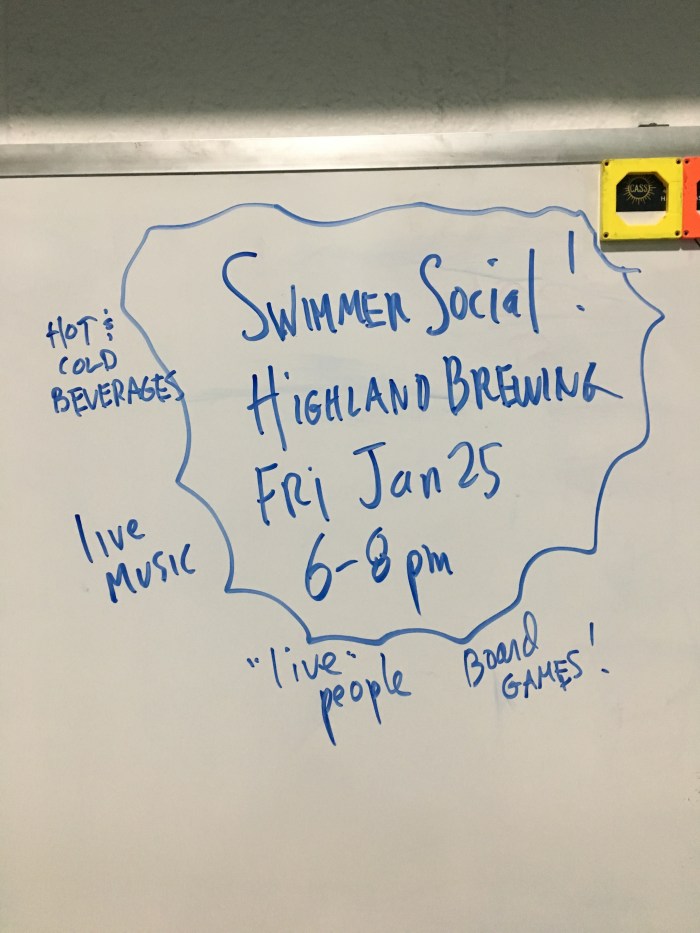 SWIMMER Social!
HIGHLAND BREWING
FRi Jan 25
6-8 pm
HOT &
COLD
BEVERAGES
live
MUSIC
"live"
people
Board
GAMES!